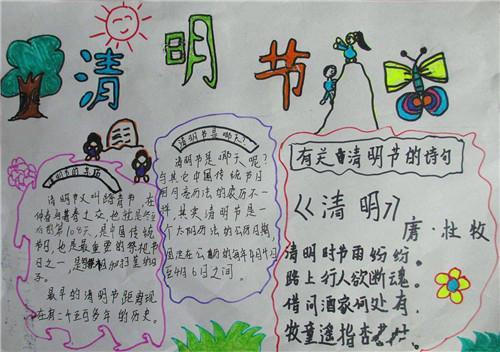 清明节
明节的来历
清明节又叫踏青节,在
仲春与暮春之交,也就是冬至
后的第108天,是中国传统
节日,也是最重要的祭祀节
日之一,是祭祖和扫墓的日
子。
最早的清明节距离现
在有二千五百多年的历史。
清明节是哪天?
清明节是哪天呢?
与其它中国传统节日
用月亮历法的农历不一
样,其实清明节是一
个太阳历法的公历日期,
固定在公历的每年4月4日
至4月6日之间。
有关清明节的诗句
《清明》
唐·牧
清明时节雨纷纷。
路上行人欲断魂。
借问酒家何处有.
牧童遥指杏